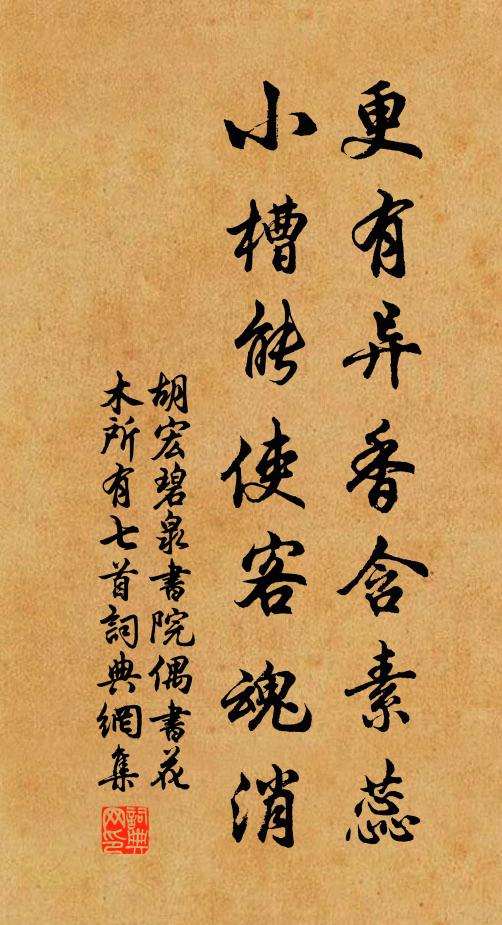 更有异香含素蕊
小槽能使客魂消
胡宏碧泉書院偶書花
木所有七首詞典網集
詞典
网印